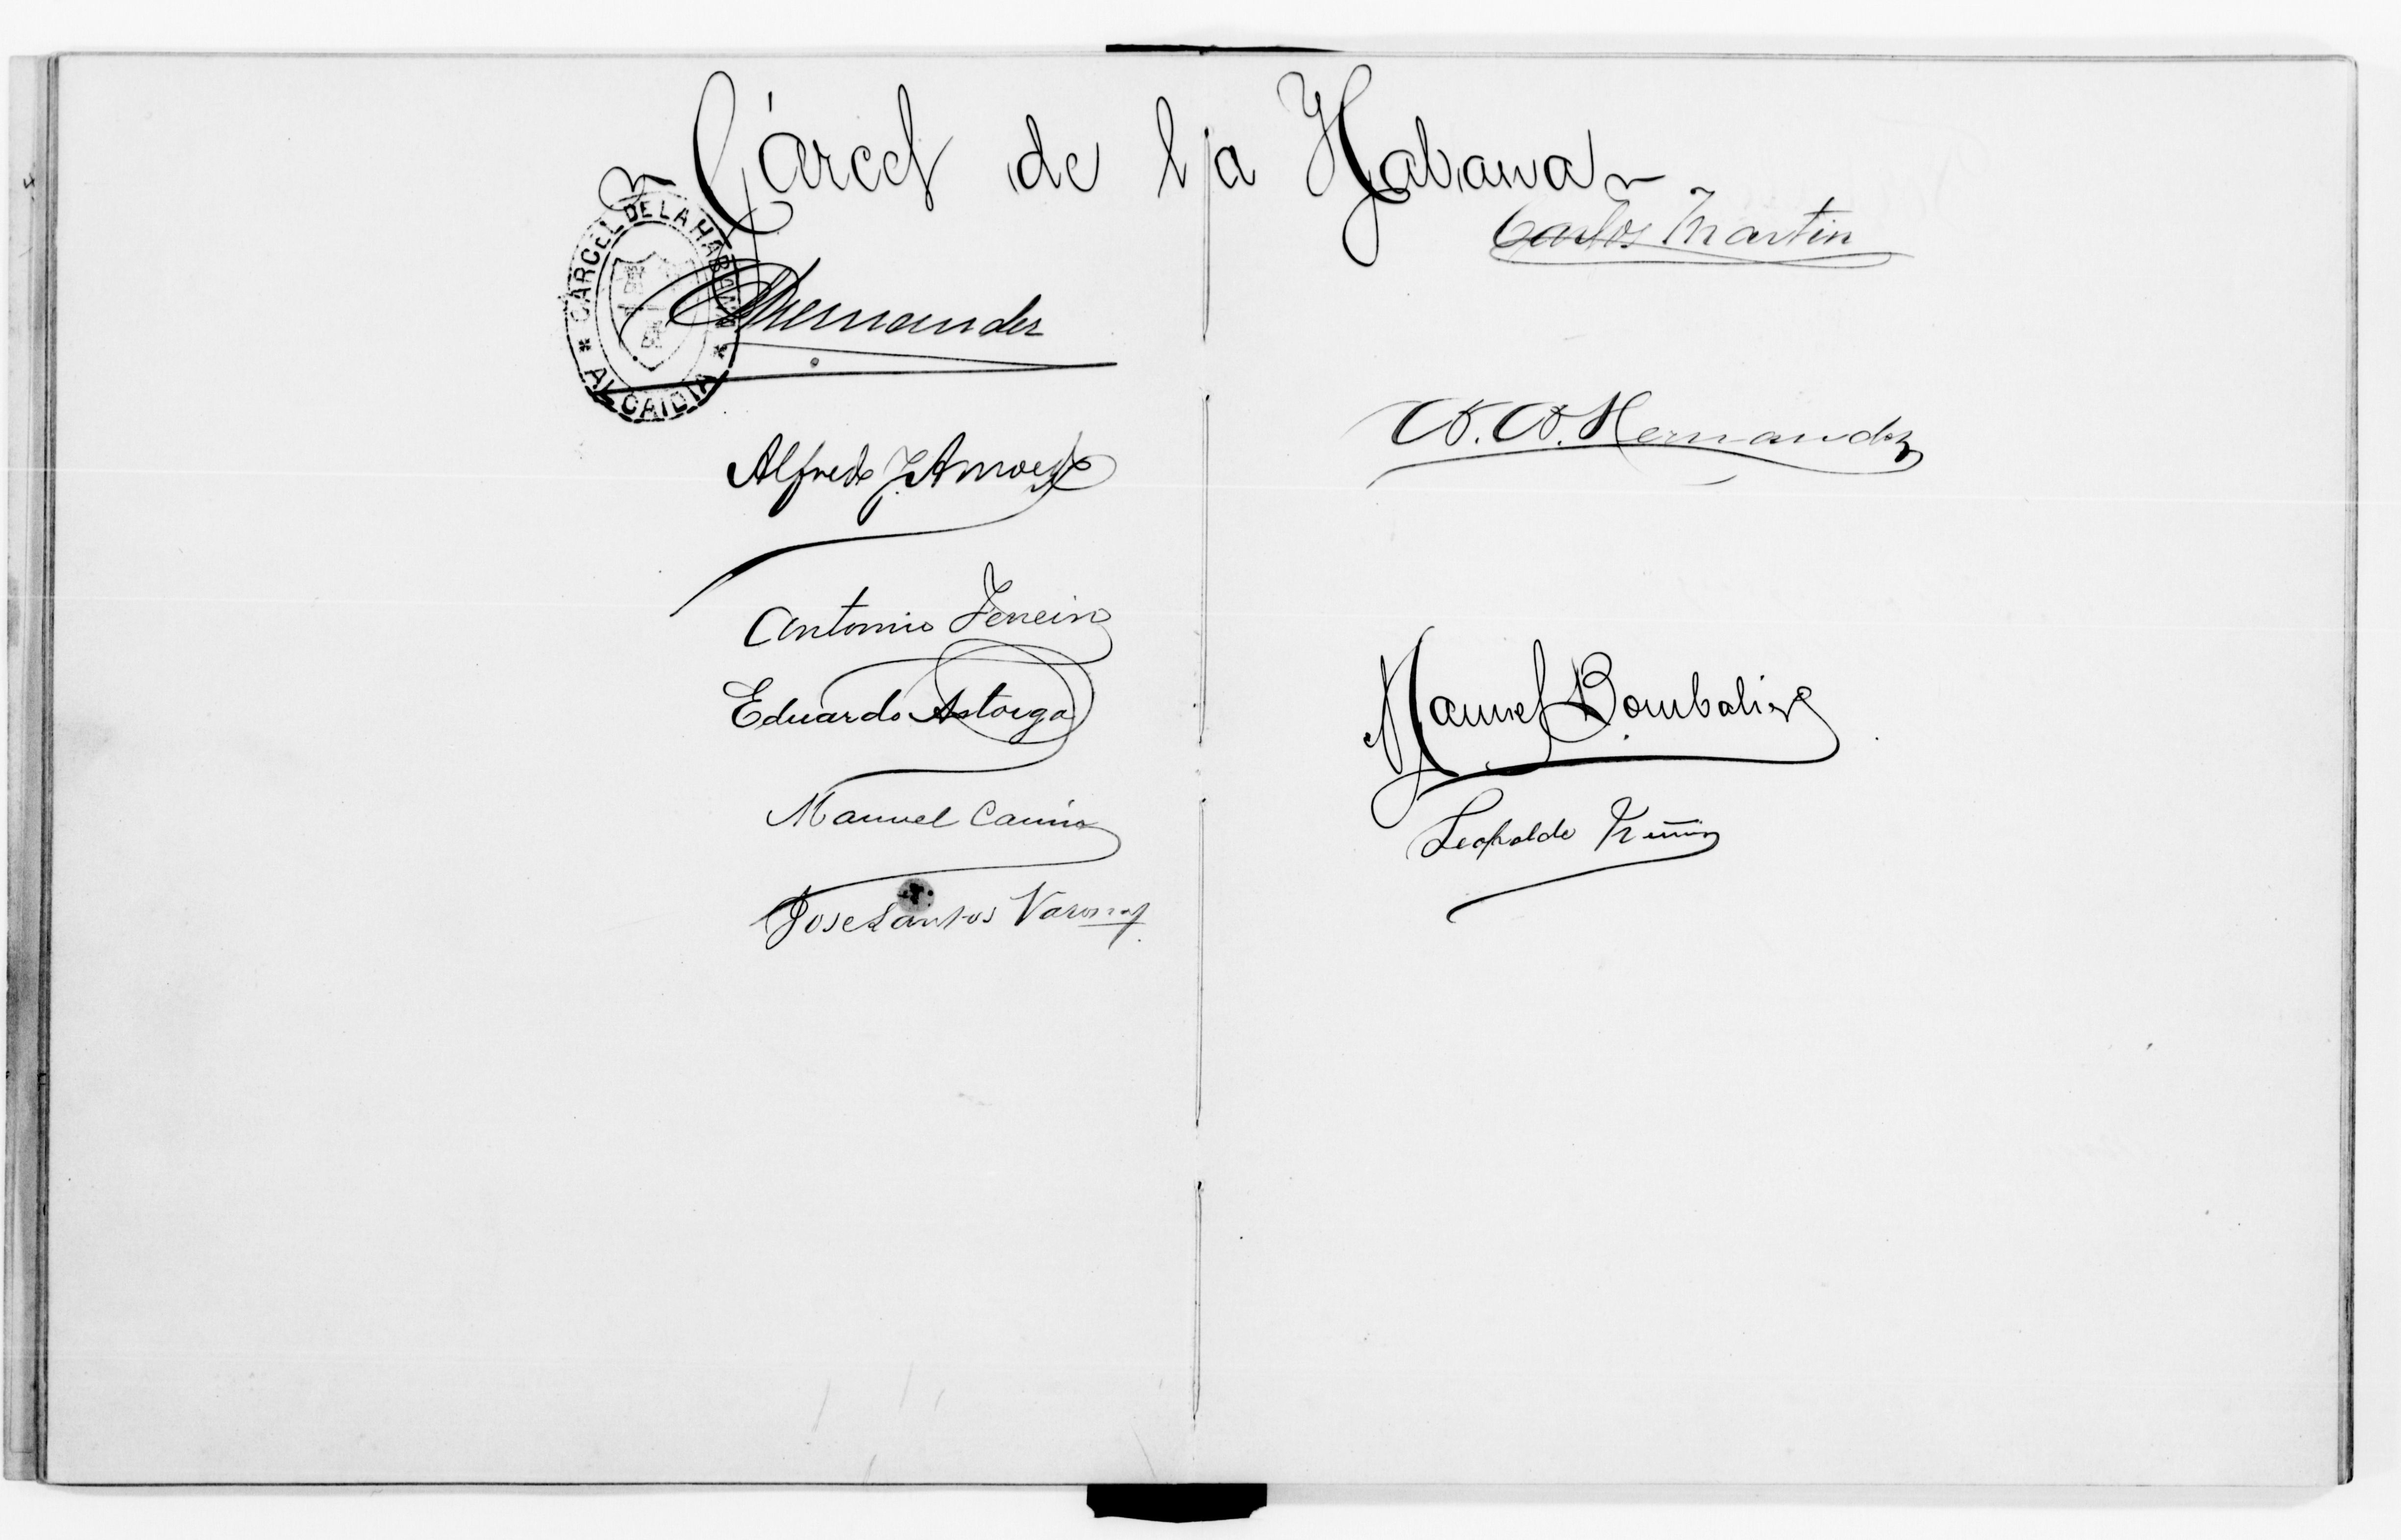 Cárcel de la Habana
CARCEL DE LA HABANA
* ALCAIDIA *
Hernandez
Alfredo J.
Antonio
Eduardo Astorga
Manuel
Jose Santos Varona
Carlos Martin
Hernandez
Manuel Bombalier
Leopoldo